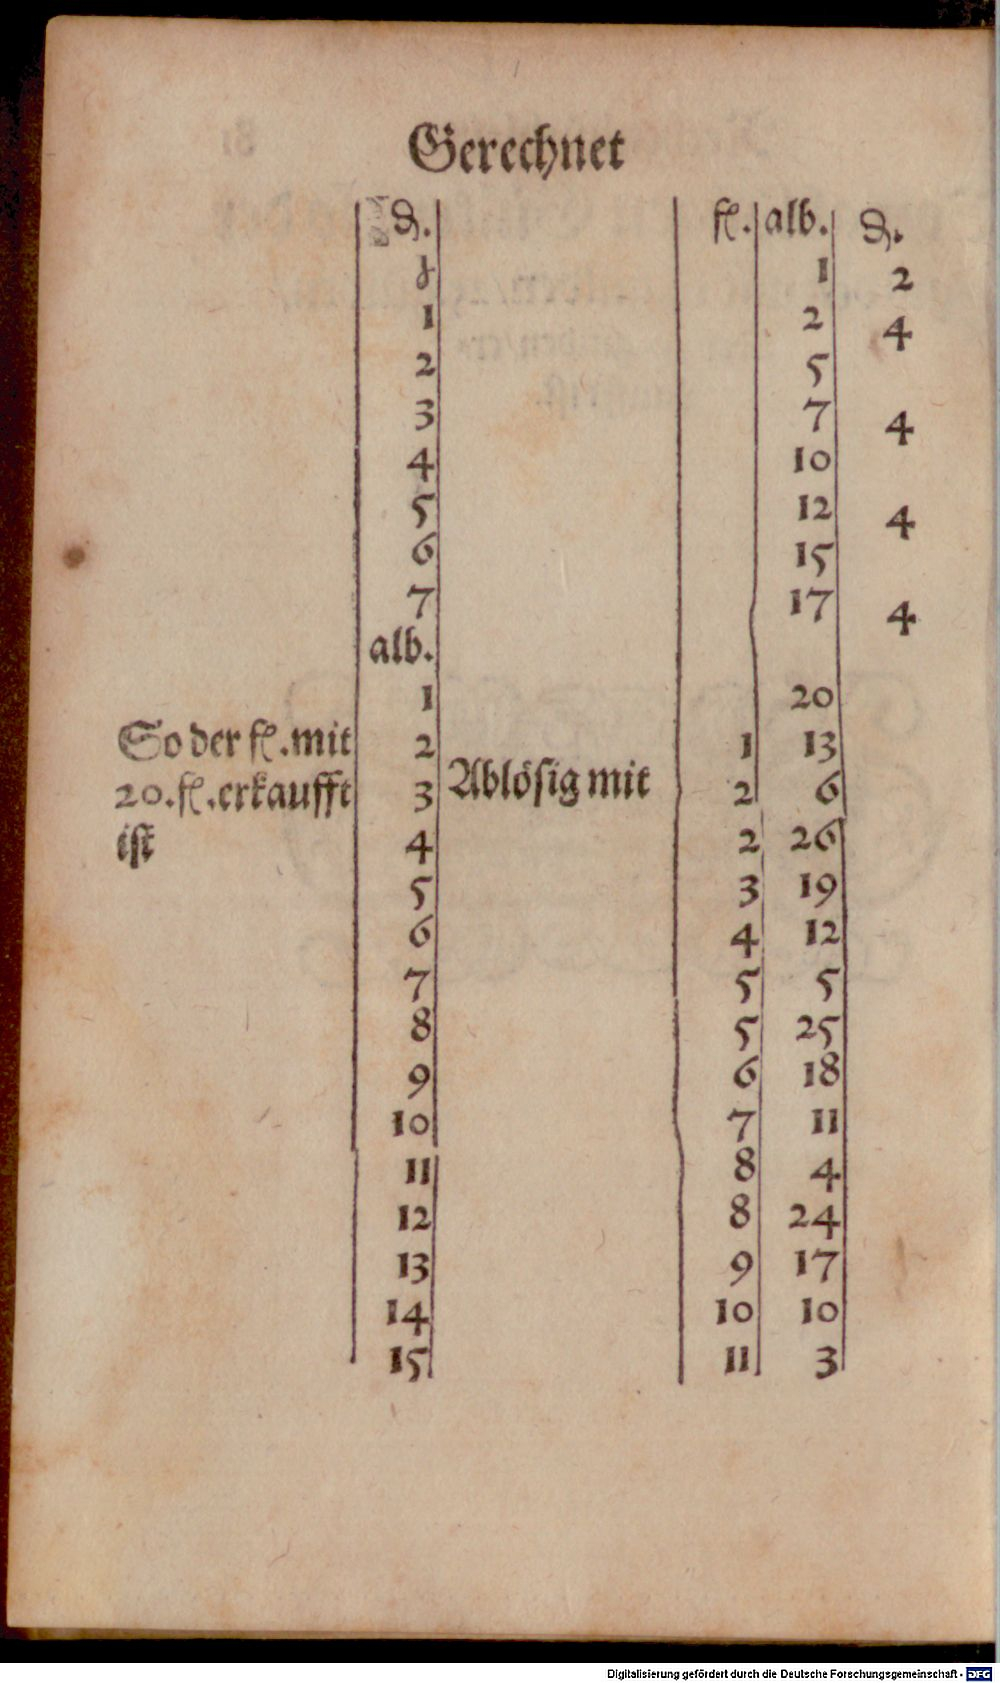 Gerechnet
₰. fl. alb. ₰.
1 2
1 2 4
2 5
3 7 4
4 10
5 12 4
6 15
7 17 4
alb.
1 20
So der fl. mit 2 1 13
20. fl. erkaufft 3 Ablösig mit 2 6
ist 4 2 26
5 3 19
6 4 12
7 5 5
8 5 25
9 6 18
10 7 11
11 8 4
12 8 24
13 9 17
14 10 10
15 11 3
Digitalisierung gefördert durch die Deutsche Forschungsgemeinschaft - DFG